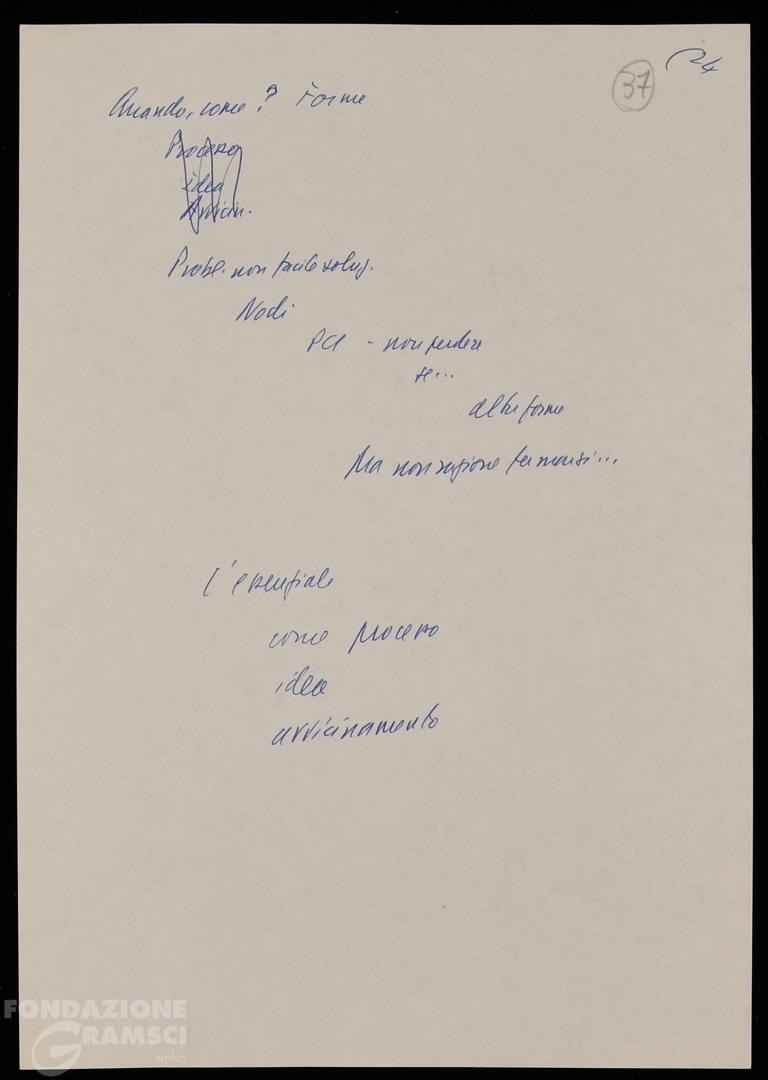 24
37
Quando, come? Forme
Processo
idea
Avvicin.
Probl. non facile soluz.
Nodi
PCI - non perdere
se...
altre forme
Ma non ragione fermarsi...
L'essenziale
come processo
idea
avvicinamento
FONDAZIONE
GRAMSCI
onlus